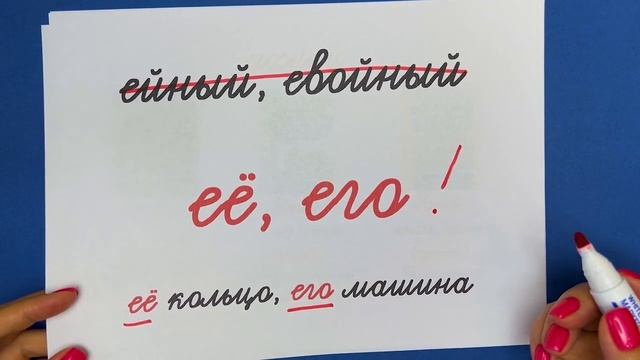 ейный, евойный
её, его!
её кольцо, его машина